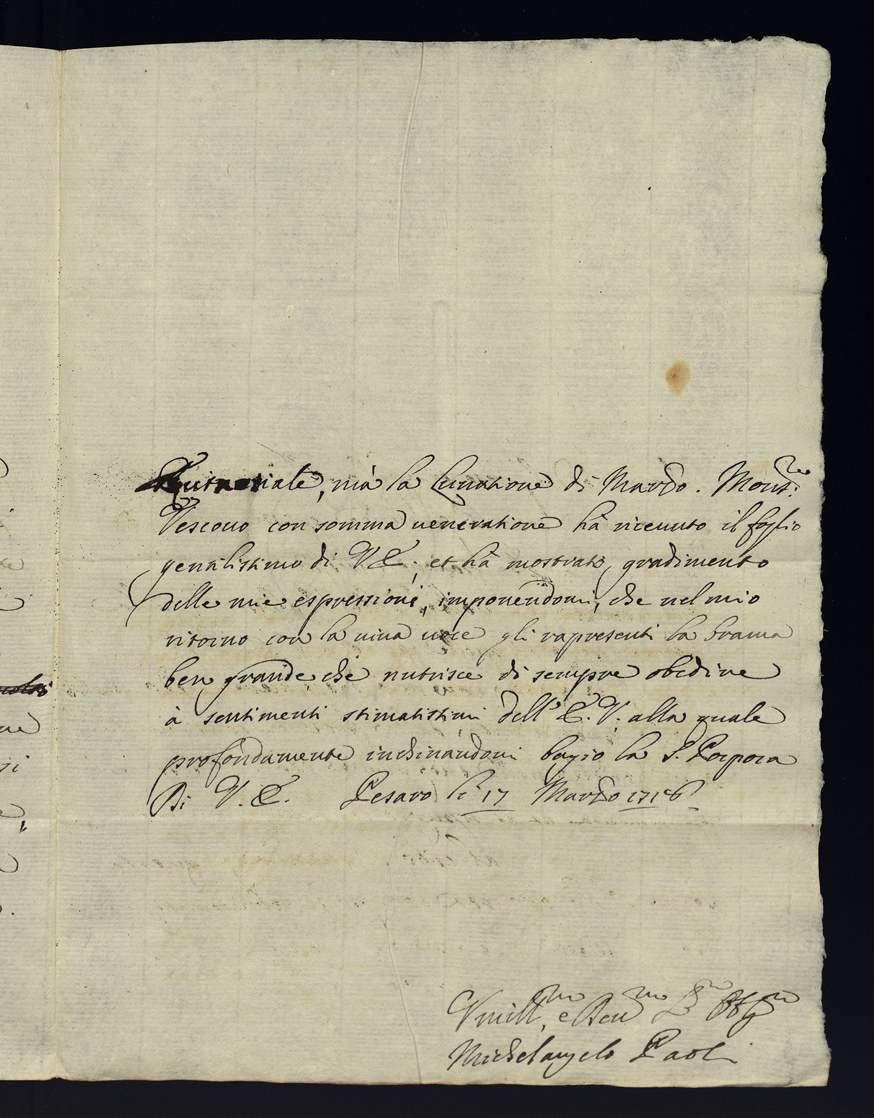 mà la Lunatione di Marzo. Monsre
Vescouo con somma ueneratione hà riceuuto il foglio
genalissimo di V.E. et hà mostrato gradimento
delle mie espressioni, imponendomi, che nel mio
ritorno con la uiua uoce gli rapresenti la brama
ben grande che nutrisce di sempre obedire
à sentimenti stimatissimi dell' E.V. alla quale
profondamente inchinandomi bagio la S. Porpora
Di V.E. Pesaro li 17 Marzo 1716
Vmillmo, e Deumo Obbmo
Michelangelo Paoli